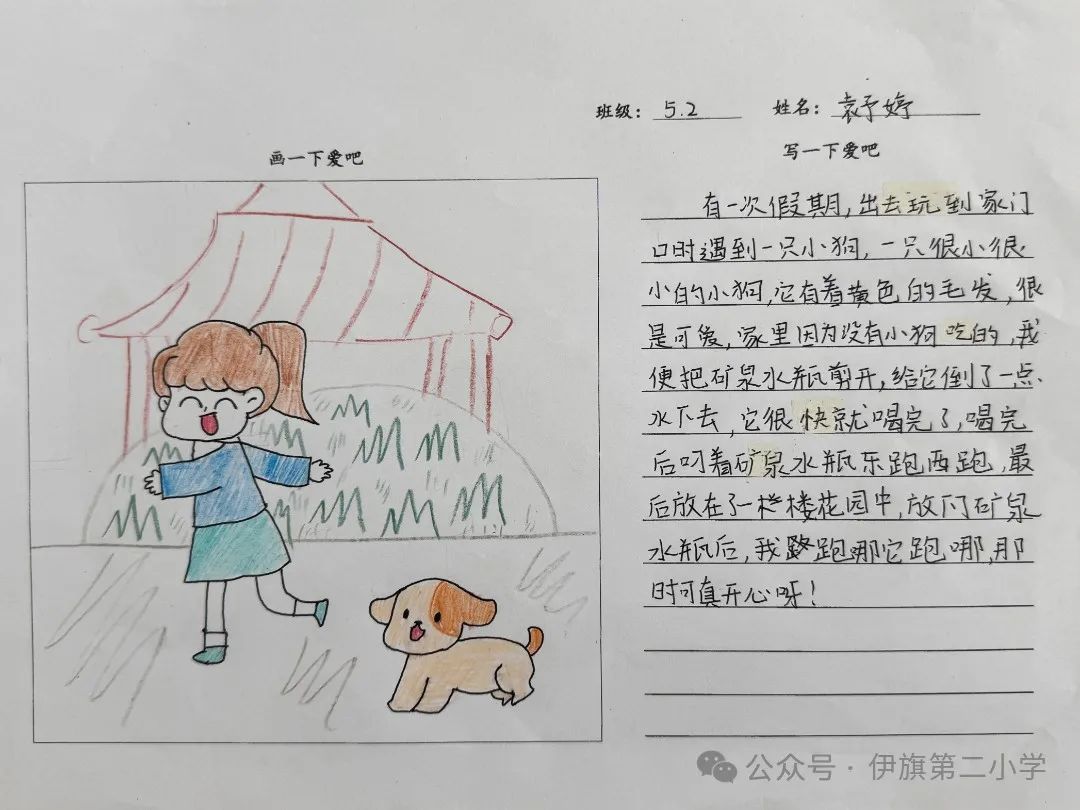 班级： 5.2 姓名： 袁予婷
画一下爱吧
写一下爱吧
有一次假期，出去玩到家门
口时遇到一只小狗，一只很小很
小的小狗，它有着黄色的毛发，很
是可爱，家里因为没有小狗吃的，我
便把矿泉水瓶剪开，给它倒了一点
水下去，它很快就喝完了，喝完
后叼着矿泉水瓶东跑西跑，最
后放在了一栏楼花园中，放下矿泉
水瓶后，我跑哪它跑哪，那
时可真开心呀！
公众号 · 伊旗第二小学